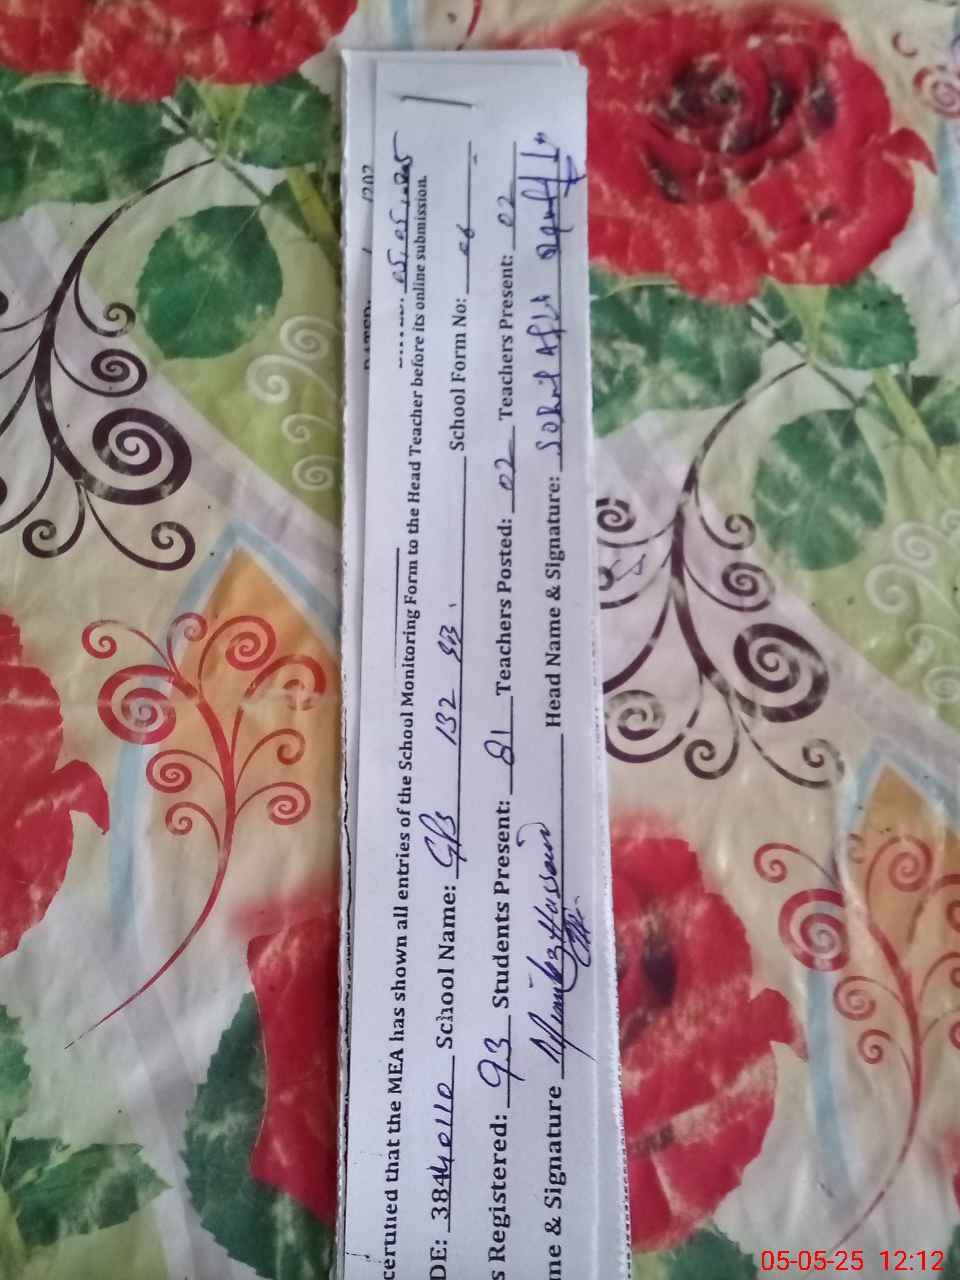 DATED: 05,05,2025
ceruned that the MEA has shown all entries of the School Monitoring Form to the Head Teacher before its online submission.
DE: 38440110 School Name: GPS 132 SB. School Form No: 06
s Registered: 93 Students Present: 81 Teachers Posted: 02 Teachers Present: 02
me & Signature Hussain Head Name & Signature: Sohail
05-05-25 12:12